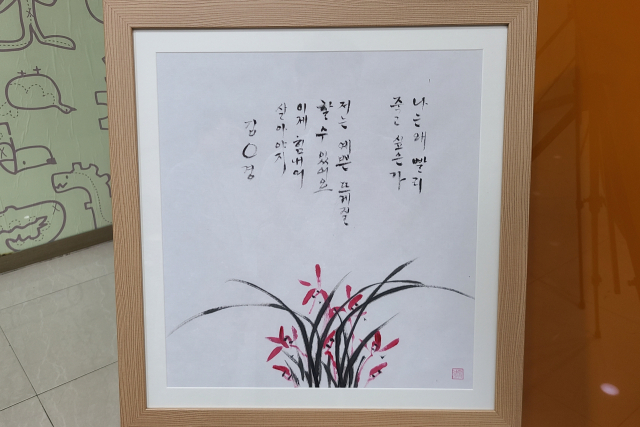 나는 왜 빨리
죽고 싶은가
저는 예쁜 뜨게질
할 수 있어요
이제 힘내어
살아야지
김 O 경